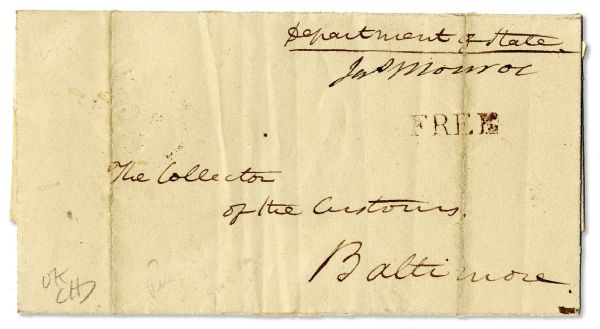 Department of State.
Jas Monroe
FREE
The Collector
of the Customs.
Baltimore.